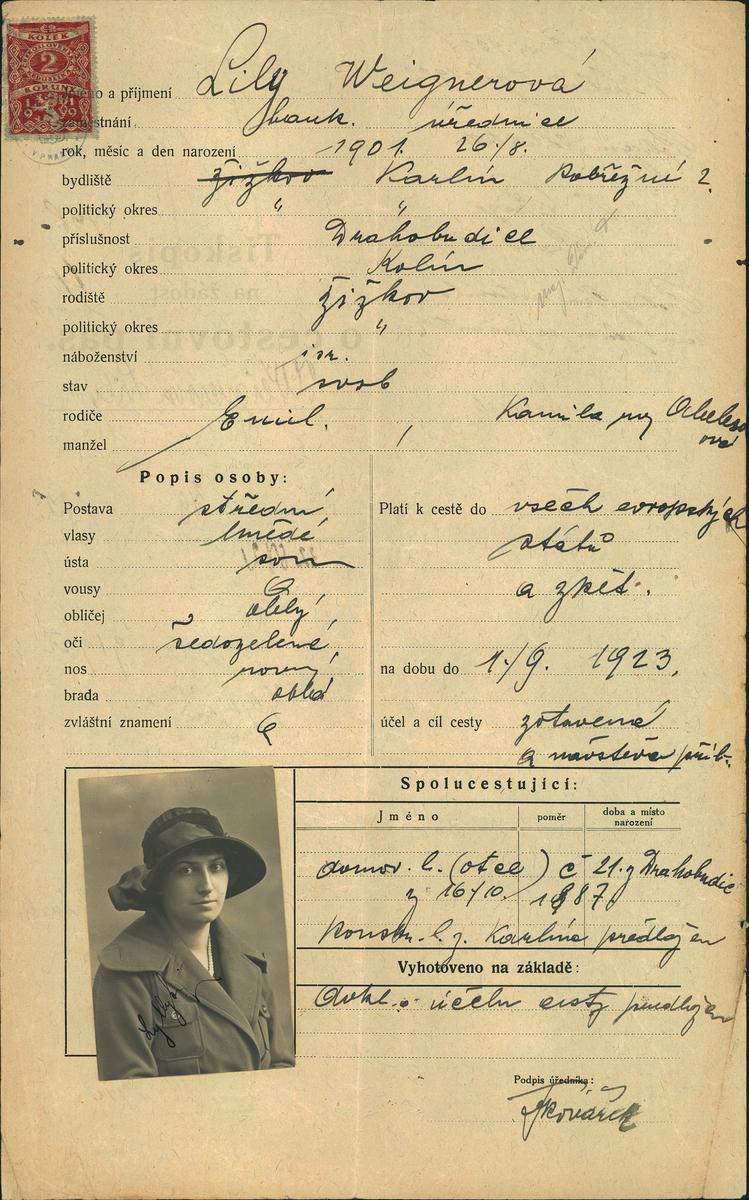 KOLEK
2
KORUNY
1919
jméno a příjmení Lily Weignerová
zaměstnání bank. úřednice
rok, měsíc a den narození 1901. 26./8.
bydliště Žižkov Karlín Pobřežné 2.
politický okres " "
příslušnost Drahobudice
politický okres Kolín
rodiště Žižkov
politický okres "
náboženství isr.
stav svob
rodiče Emil, Kamila roz
manžel
Popis osoby:
Postava střední
vlasy hnědé
ústa
vousy
obličej oblý
oči šedozelené
nos rovný
brada oblá
zvláštní znamení
Platí k cestě do všech evropských
států
a zpět.
na dobu do 1./9. 1923.
účel a cíl cesty zotavená
a návštěva příb.
Spolucestující:
Jméno poměr doba a místo
narození
domov. l. (otce) č 21. z Drahobudic
z 16/10. 1887
konskr. l. z. Karlína předložen
Vyhotoveno na základě:
dokl. o účelu cesty předložen
Podpis úředníka: